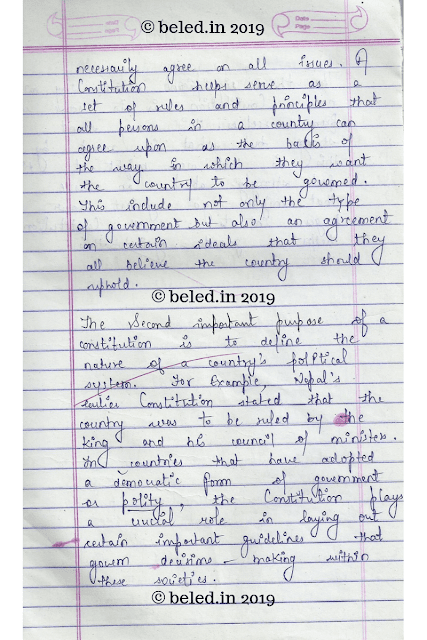 © beled.in 2019
Date
Page
necessarily agree on all issues. A
Constitution helps serve as a
set of rules and principles that
all persons in a country can
agree upon as the basis of
the way in which they want
the country to be governed.
This include not only the type
of government but also an agreement
on certain ideals that they
all believe the country should
uphold.
© beled.in 2019
The Second important purpose of a
constitution is to define the
nature of a country's political
system. For Example, Nepal's
earlier Constitution stated that the
country was to be ruled by the
King and his council of ministers.
In countries that have adopted
a democratic form of government
or polity, the Constitution plays
a crucial role in laying out
certain important guidelines that
govern decisions - making within
these societies.
© beled.in 2019